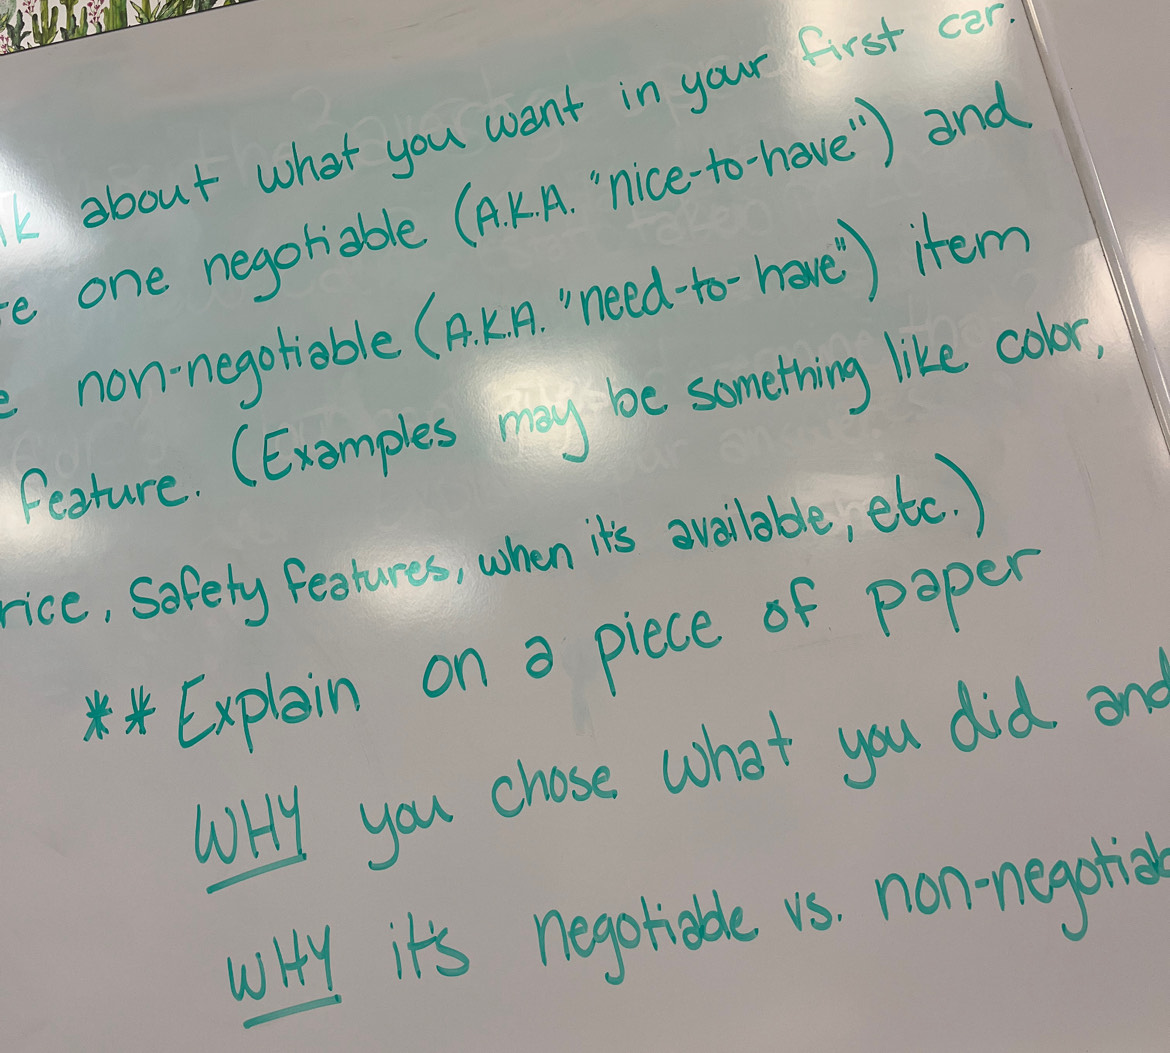 lk about what you want in your first car.
re one negotiable (A.K.A. "nice-to-have") and
e non-negotiable (A.K.A. "need-to-have") item
feature. (Examples may be something like color,
rice, Safety features, when it's available, etc.)
** Explain on a piece of paper
WHY you chose what you did and
WHY it's negotiable vs. non-negotiab